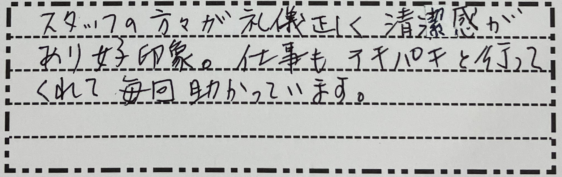 スタッフの方々が礼儀正しく清潔感が
あり好印象。仕事もテキパキと行って
くれて毎回助かっています。